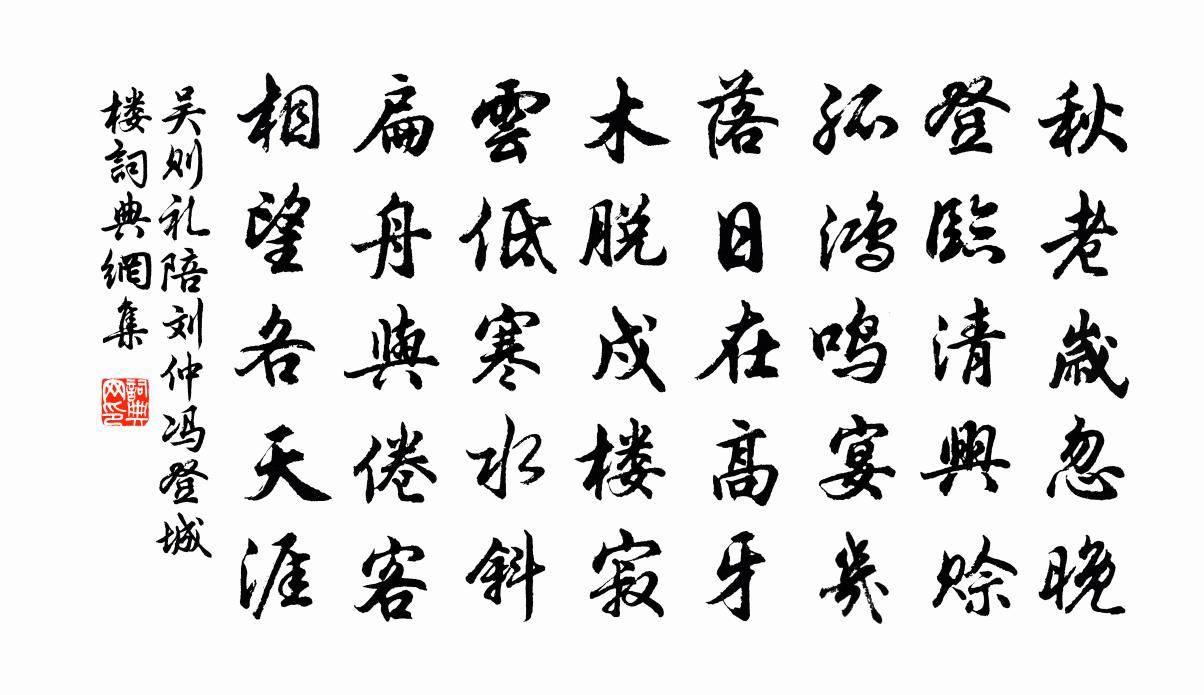 秋老歲忽晚
登臨清興賒
孤鴻鳴宴幾
落日在高牙
木脫戍楼寂
雲低寒水斜
扁舟與倦客
相望各天涯
吴则礼陪刘仲冯登城
楼詞典網集
詞典
网印